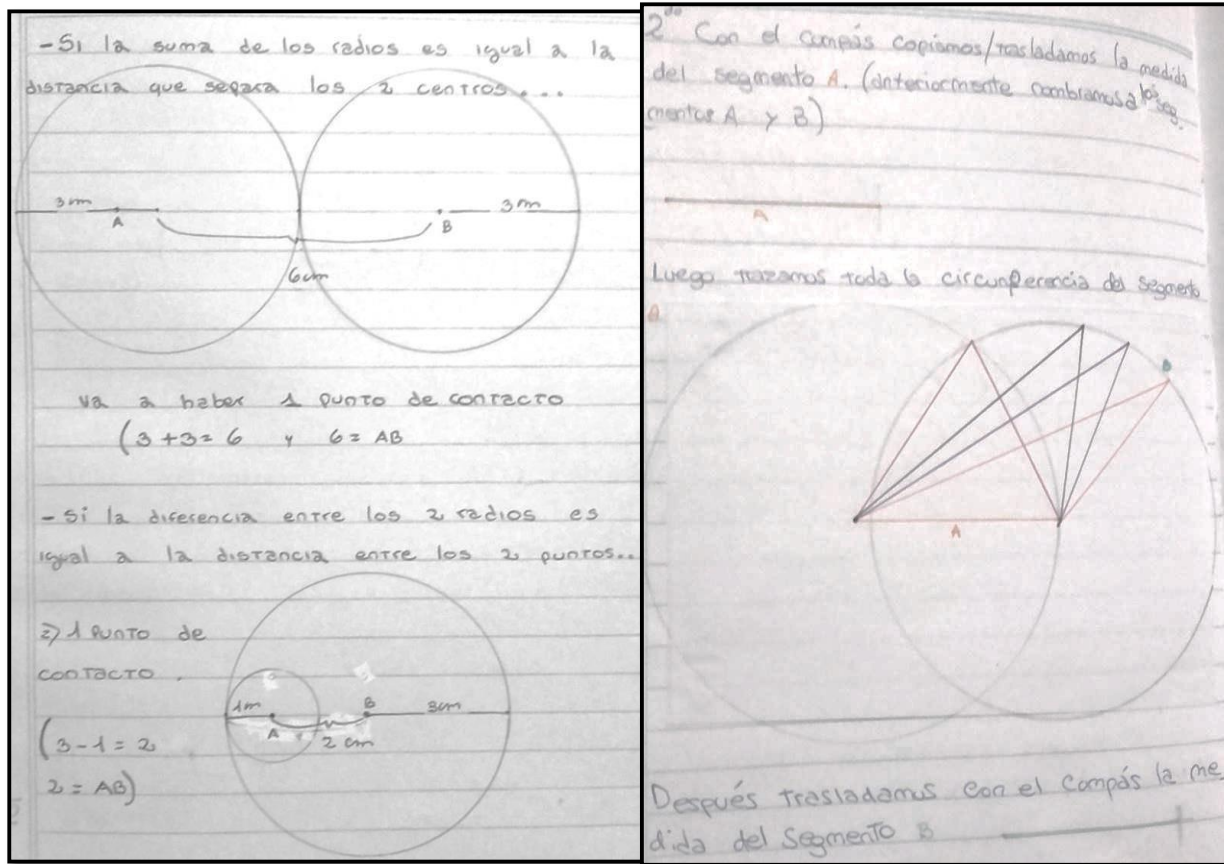 -Si la suma de los radios es igual a la
distancia que separa los 2 centros...
3 cm
A
B
3 cm
6cm
va a haber 1 punto de contacto
(3+3=6 y 6=AB
-Si la diferencia entre los 2 radios es
igual a la distancia entre los 2 puntos..
2) 1 punto de
contacto.
1cm
A
B
3cm
2 cm
(3-1=2
2=AB)
2do Con el compás copiamos/trasladamos la medida
del segmento A. (anteriormente nombramos a los seg.
mentos A y B)
A
Luego trazamos toda la circunferencia del segmento
A
B
A
Después trasladamos con el compás la me
dida del segmento B